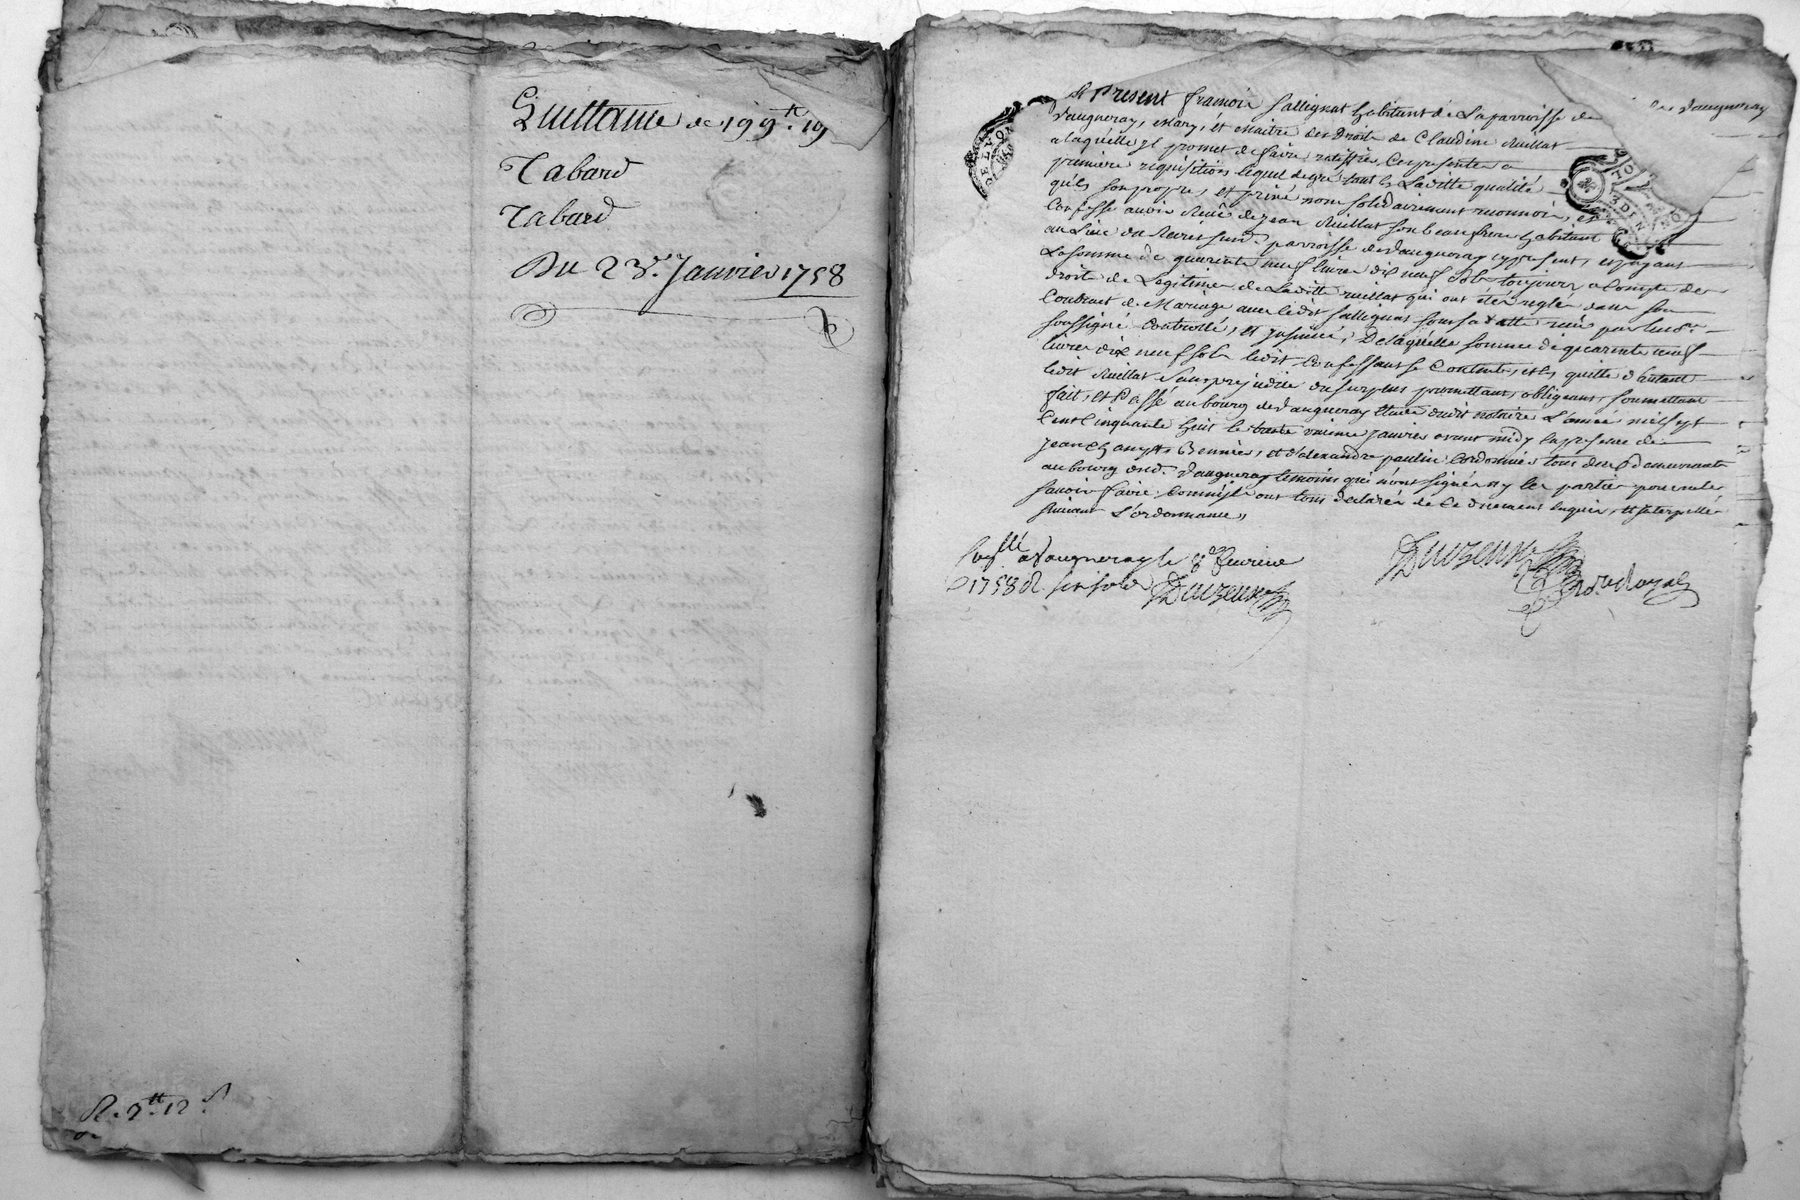 Quittance de 199 ₶ 19
Tabard
Tabard
Du 23e. Janvier 1758
R. 2 ₶ 12 s
Est Present francois Sallignat habitant de La parroisse de
Vaugneray, Mary, et Maitre des Droits de Claudine Ruillat
a laquelle Jl promet de faire ratiffier Ces presentes a
premiere requisition lequel de gré tant En Laditte qualité
qu'en son propre, et privé nom solidairement reconnoit, et
Confesse avoir Receu de Jean Ruillat son beau frere habitant
au Lieu du parroisse de Vaugneray y present, et payant
La somme de quarente neuf livres dix neuf sols toujours a Compte des
droits de Legitime de Laditte ruillat qui ont été reglé dans son
Contract de Mariage avec ledit Sallignat sous sa datte receu par le no.re
soussigné Controllé, et Jnsinué, De laquelle somme de quarente neuf
livres dix neuf sols ledit Confessant se Contente, et en quitte d'autant
ledit Ruillat sans prejudice du surplus promettant, obligeant, soumettant
fait, et Passé au bourg de Vaugneray Etude dudit notaire L'année mil sept
Cent Cinquante huit le janvier avant midy En presence de
Jean et d'alexandre paulin Cordonnier tous deux demeurants
au bourg dud. Vaugneray temoins qui n'ont signé ny les parties pour ne le
savoir faire Comm'ils ont tous declaré de Ce duement Enquis, et Interpellé
suivant L'ordonnance,
Con.llé a Vaugneray le 8 fevrier
1758 R. six sols